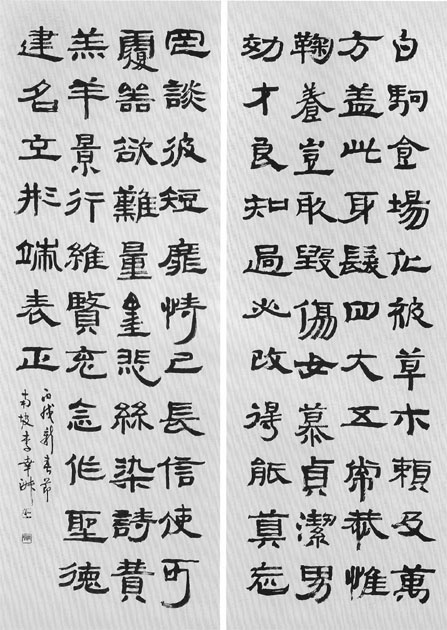 白駒食場化被草木賴及萬
方蓋此身髮四大五常恭惟
鞠養豈敢毀傷女慕貞潔男
効才良知過必改得能莫忘
罔談彼短靡恃己長信使可
覆器欲難量墨悲絲染詩贊
羔羊景行維賢克念作聖德
建名立形端表正
丙戌新春節
南坡李